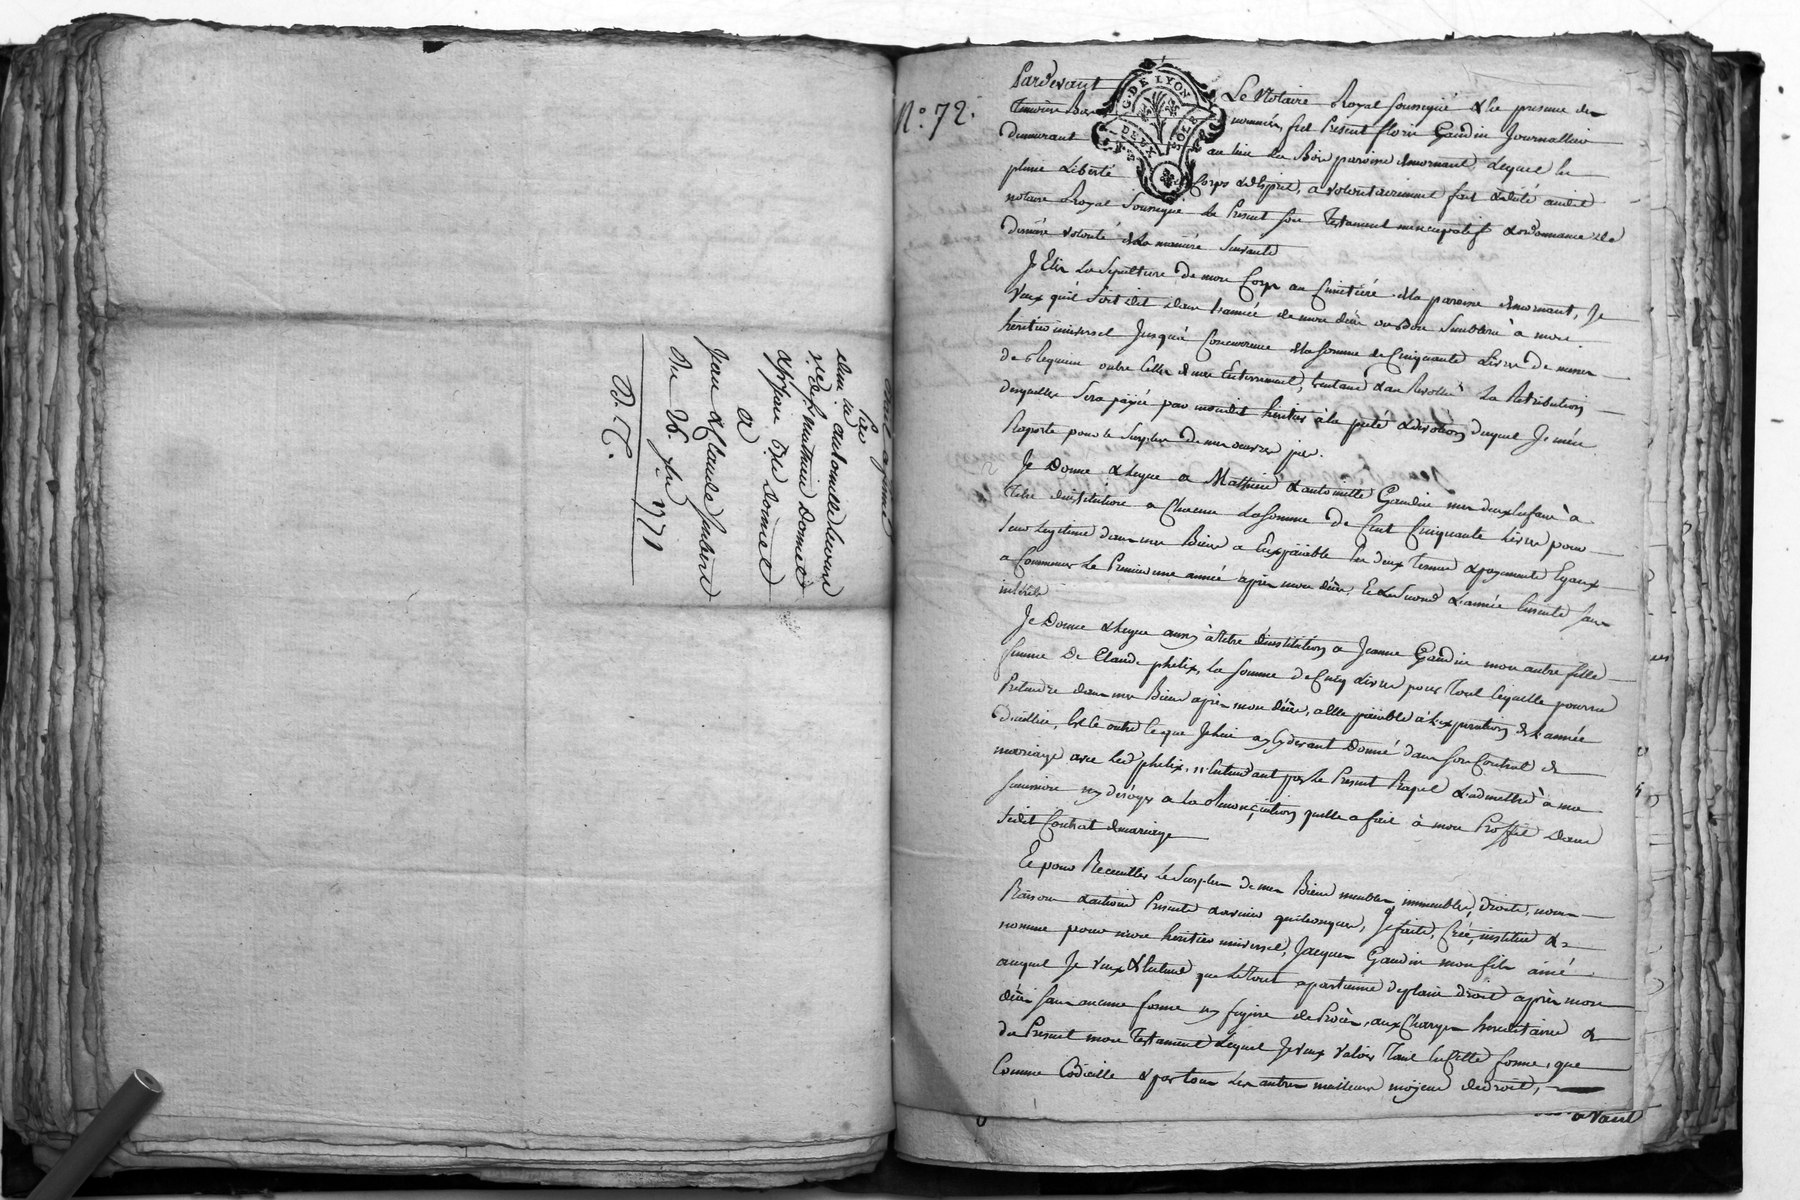 Bail a ferme
Par
dem.lle antoinette
v.e de S.r mathieu Donnet
& Sr. Jean B.te Donnet
a
Jean & Claude Jubert
Du 26. 7bre 1771
D. T.
N.o 72.
G. DE LYON
DEUX SOLS
Pardevant Le Notaire Royal soussigné & En presence des
Temoins Bas nommés, fut Present florin Gaudin Journallier
demeurant au lieu du Bois paroisse demornant Lequel En
pleine Liberté de Corps & desprit, a volontairement fait & dicté audit
notaire Royal soussigné Le Present son Testament nuncupatif & ordonnance de
derniere volonté de la maniere suivante
Je Elis La Sepulture de mon Corps au Cimetiere de la paroisse demornant, Je
veux qu'il soit dit dans L'année de mon décès ou Bon semblera à mon
heritier universel Jusqu'à Concurrence de la somme de Cinquante Livres de messes
de Requiem outre Celles de mon Enterrement, trentaine & au Revolu La Retribution
desquelles sera payée par mondit heritier à la pieté & devotion duquel Je m'en
Raporte pour le surplus de mes œuvres pies.
Je Donne & Legue a Mathieu & antoinette Gaudin mes deux Enfans à
Titre dinstitution a Chacun La somme de Cent Cinquante Livres pour
leur Legitime dans mes Biens a Eux païable En deux Termes & payements Egaux
a Commencer Le Premier une année après mon décès, Et Le second L'année Ensuite sans
intérêts
Je Donne & Legue aussy à Titre d'institution a Jeanne Gaudin mon autre fille
femme De Claude phelix, la somme de Cinq Livres pour Tout Cequ'elle pourroit
Pretendre dans mes Biens après mon décès, a Elle païable à L'expiration de L'année
d'icelluy, Et Ce outre Ce que Je Lui ay Cydevant Donné dans son Contrat de
mariage avec Led. phelix, n'Entendant par le Present Rapel L'admettre à ma
succession ny deroger a la Renonciation quelle a fait à mon Proffit Dans
sondit Contrat de mariage
Et pour Recueillir Le Surplus de mes Biens meubles, immeubles, droits, noms
Raisons & actions Presents & avenirs quelconques, J'ai fait, Créé, institué &
nommé pour mon heritier universel, Jacques Gaudin mon fils ainé
auquel Je veux & Entend que Le Tout apartienne de plain droit après mon
décès sans aucune forme ny figure de Procès, aux Charges hereditaires &
du Present mon Testament Lequel Je veux valoir Tant En Cette forme, que
Comme Codicille & par tous Les autres meilleurs moyens de droit,
avant